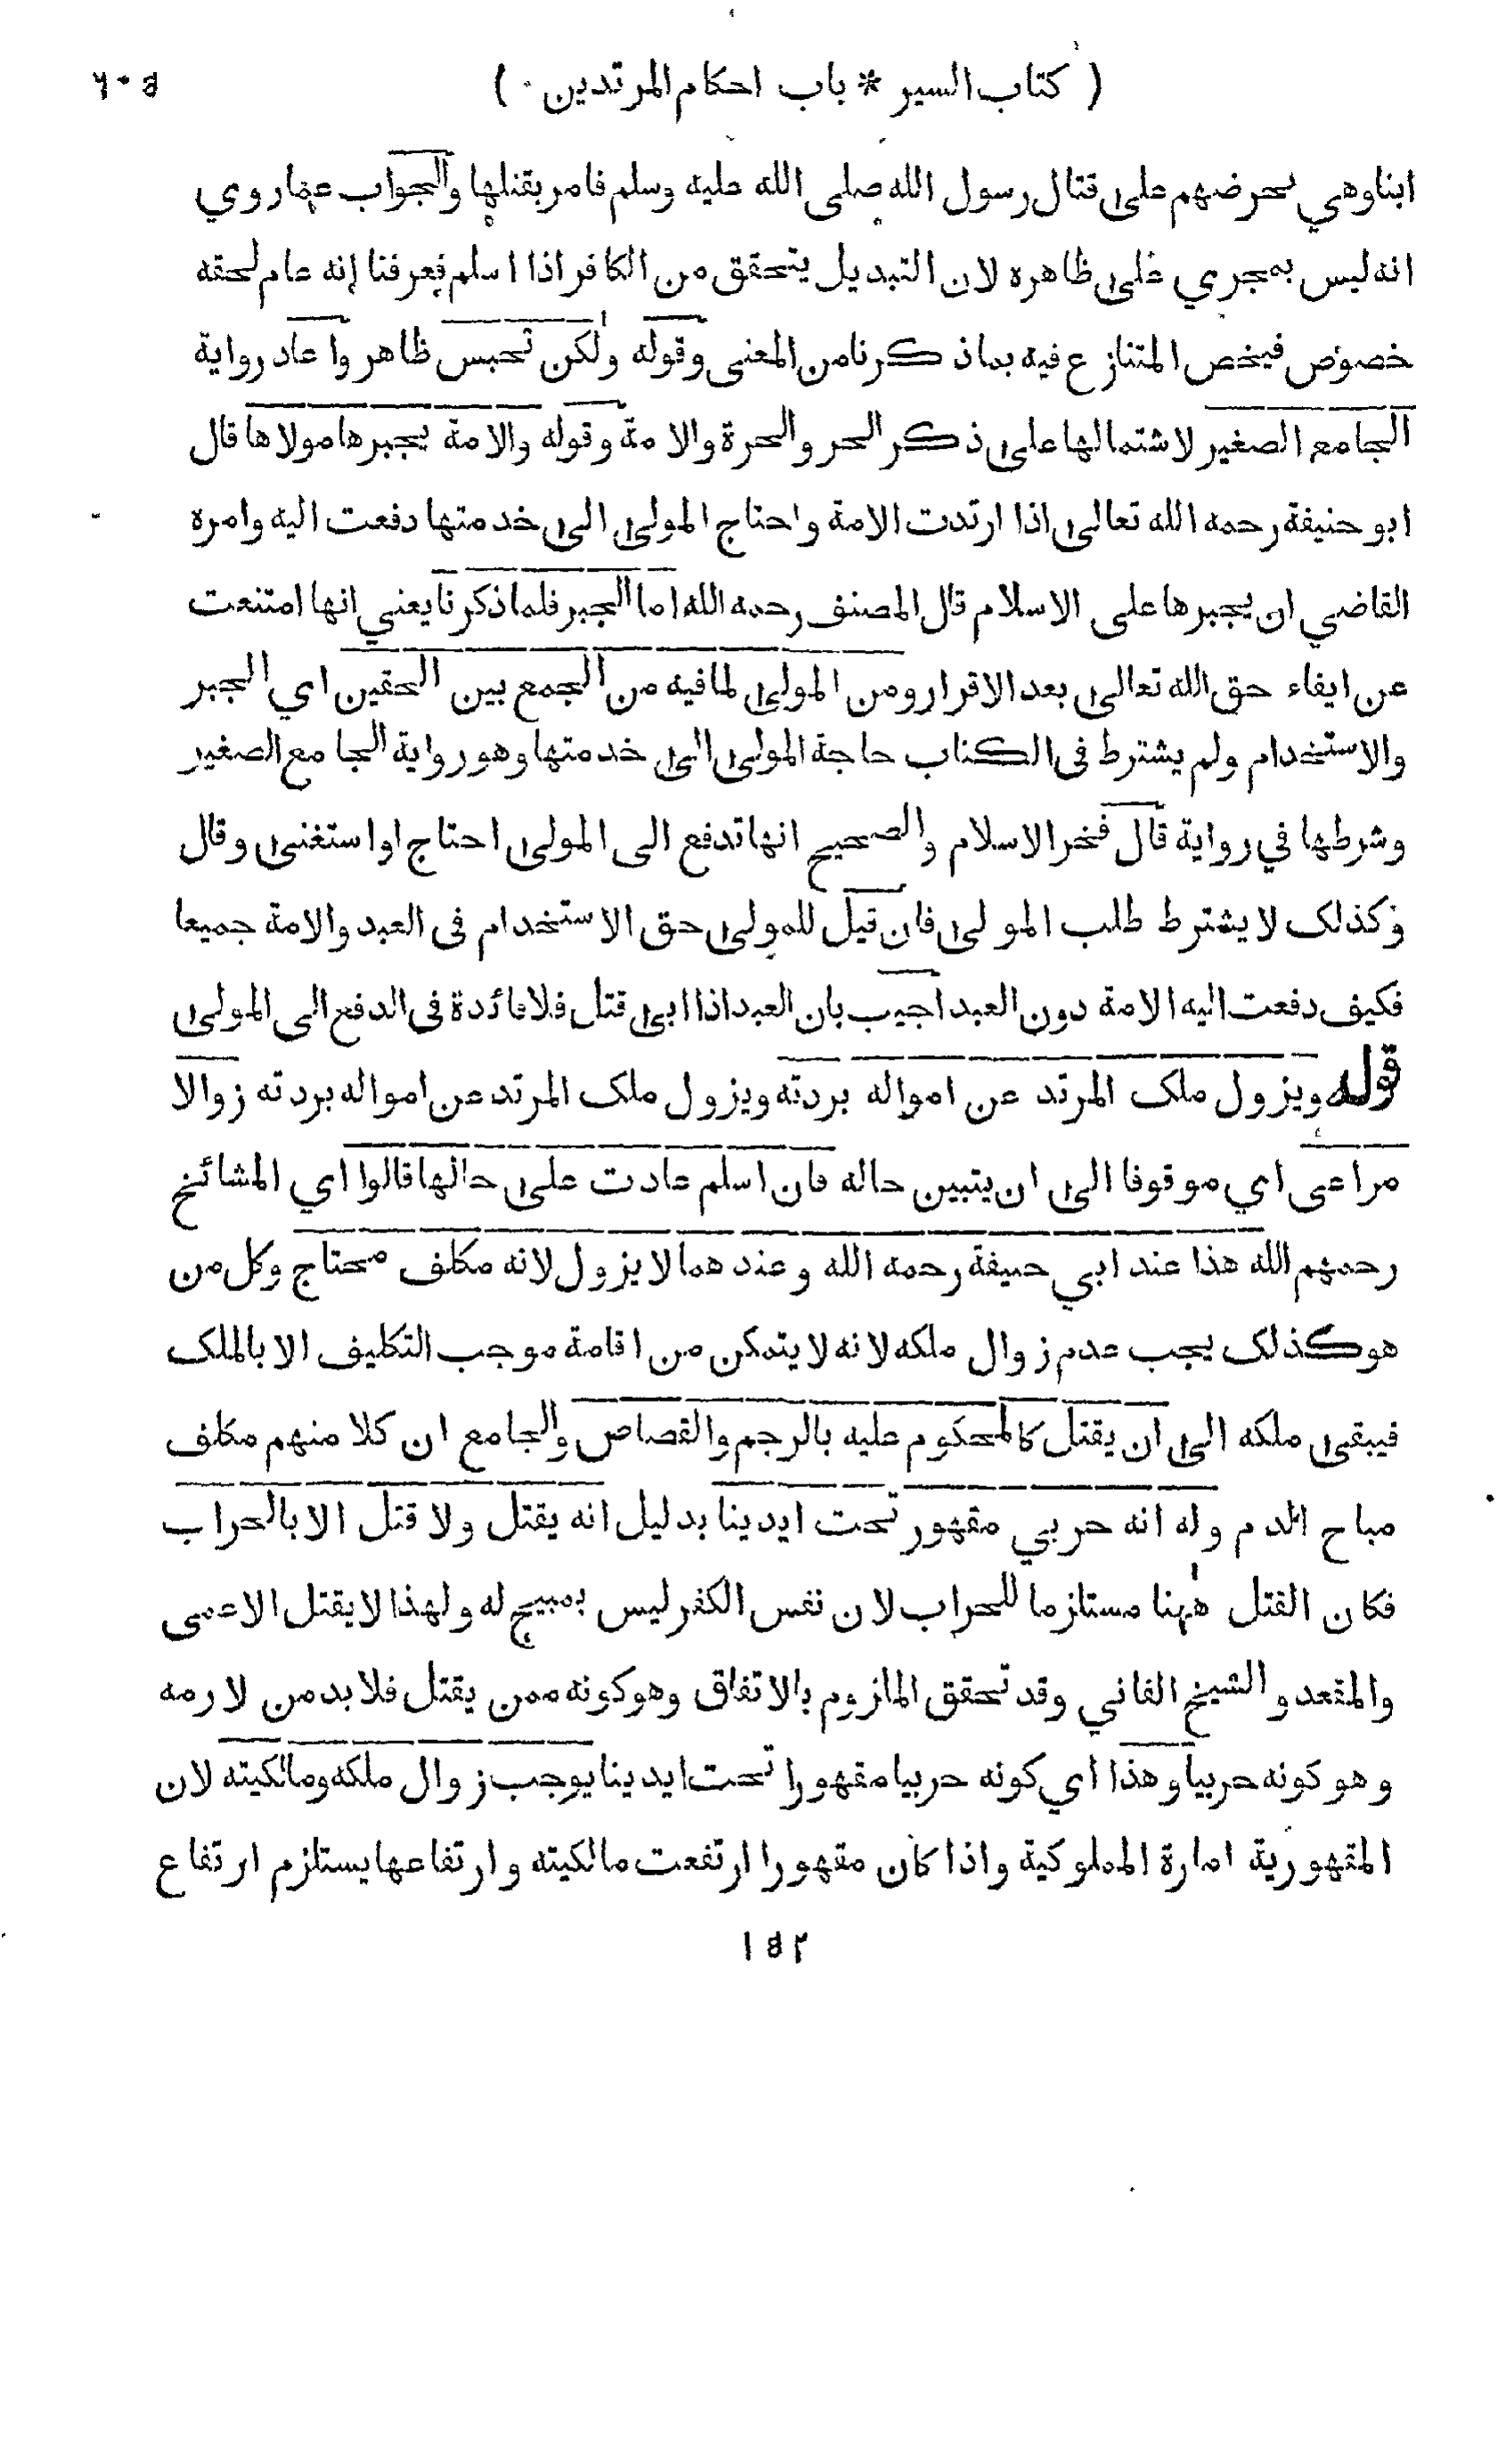 ( كتاب السير * باب احكام المرتدين )
٦٠٥
ابنا وهي تحرضهم على قتال رسول الله صلى الله عليه وسلم فامر بقتلها والجواب عما روي
انه ليس بمجري على ظاهره لان التبديل يتحقق من الكافر اذا اسلم فعرفنا انه عام لحقه
خصوص فيخص المتنازع فيه بما ذكرنا من المعنى وقوله ولكن تحبس ظاهر واعاد رواية
الجامع الصغير لاشتمالها على ذكر الحر والحرة والامة وقوله والامة يجبرها مولاها قال
ابو حنيفة رحمه الله تعالى اذا ارتدت الامة واحتاج المولى الى خدمتها دفعت اليه وامره
القاضي ان يجبرها على الاسلام قال المصنف رحمه الله اما الجبر فلما ذكرنا يعني انها امتنعت
عن ايفاء حق الله تعالى بعد الاقرار ومن المولى لما فيه من الجمع بين الحقين اي الجبر
والاستخدام ولم يشترط فى الكتاب حاجة المولى الى خدمتها وهو رواية الجامع الصغير
وشرطها في رواية قال فخر الاسلام والصحيح انها تدفع الى المولى احتاج او استغنى وقال
وكذلك لا يشترط طلب المولى فان قيل للمولى حق الاستخدام فى العبد والامة جميعا
فكيف دفعت اليه الامة دون العبد اجيب بان العبد اذا ابى قتل فلا فائدة فى الدفع الى المولى
قوله ويزول ملك المرتد عن امواله بردته ويزول ملك المرتد عن امواله بردته زوالا
مراعى اي موقوفا الى ان يتبين حاله فان اسلم عادت على حالها قالوا اي المشائخ
رحمهم الله هذا عند ابي حنيفة رحمه الله وعندهما لا يزول لانه مكلف محتاج وكل من
هو كذلك يجب عدم زوال ملكه لانه لا يتمكن من اقامة موجب التكليف الا بالملك
فيبقى ملكه الى ان يقتل كالمحكوم عليه بالرجم والقصاص والجامع ان كلا منهم مكلف
مباح الدم وله انه حربي مقهور تحت ايدينا بدليل انه يقتل ولا قتل الا بالحراب
فكان القتل ههنا مستلزما للحراب لان نفس الكفر ليس بمبيح له ولهذا لا يقتل الاعمى
والمقعد والشيخ الفاني وقد تحقق الملزوم بالاتفاق وهو كونه ممن يقتل فلا بد من لازمه
وهو كونه حربيا وهذا اي كونه حربيا مقهورا تحت ايدينا يوجب زوال ملكه ومالكيته لان
المقهورية امارة المملوكية واذا كان مقهورا ارتفعت مالكيته وارتفاعها يستلزم ارتفاع
١٥٢